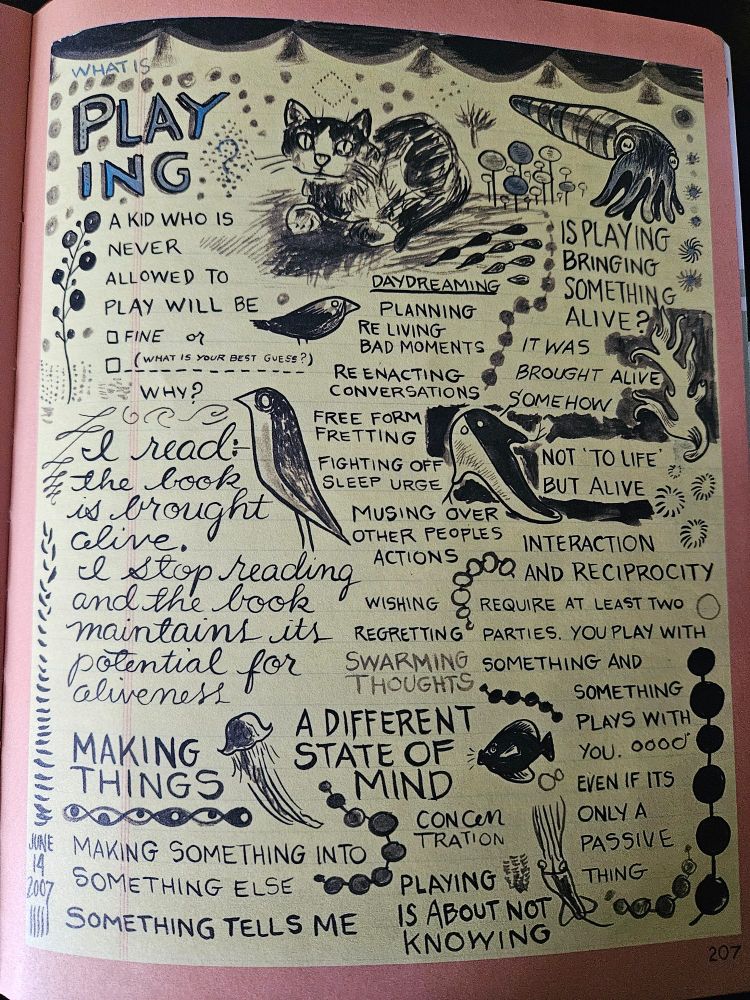 WHAT IS
PLAY
ING ?
A KID WHO IS
NEVER
ALLOWED TO
PLAY WILL BE
FINE or
(WHAT IS YOUR BEST GUESS?)
WHY?
I read:
the book
is brought
alive.
I stop reading
and the book
maintains its
potential for
aliveness
DAYDREAMING
PLANNING
RE LIVING
BAD MOMENTS
RE ENACTING
CONVERSATIONS
FREE FORM
FRETTING
FIGHTING OFF
SLEEP URGE
MUSING OVER
OTHER PEOPLES
ACTIONS
WISHING
REGRETTING
SWARMING
THOUGHTS
IS PLAYING
BRINGING
SOMETHING
ALIVE?
IT WAS
BROUGHT ALIVE
SOMEHOW
NOT 'TO LIFE'
BUT ALIVE
INTERACTION
AND RECIPROCITY
REQUIRE AT LEAST TWO
PARTIES. YOU PLAY WITH
SOMETHING AND
SOMETHING
PLAYS WITH
YOU.
EVEN IF ITS
ONLY A
PASSIVE
THING
MAKING
THINGS
A DIFFERENT
STATE OF
MIND
CONCEN
TRATION
JUNE
14
2007
MAKING SOMETHING INTO
SOMETHING ELSE
SOMETHING TELLS ME
PLAYING
IS ABOUT NOT
KNOWING
207